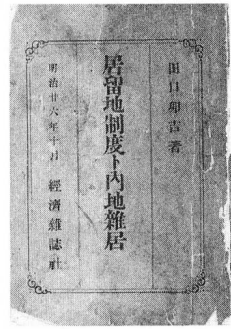 田口卯吉著
居留地制度ト内地雜居
明治廿六年十月 經濟雜誌社